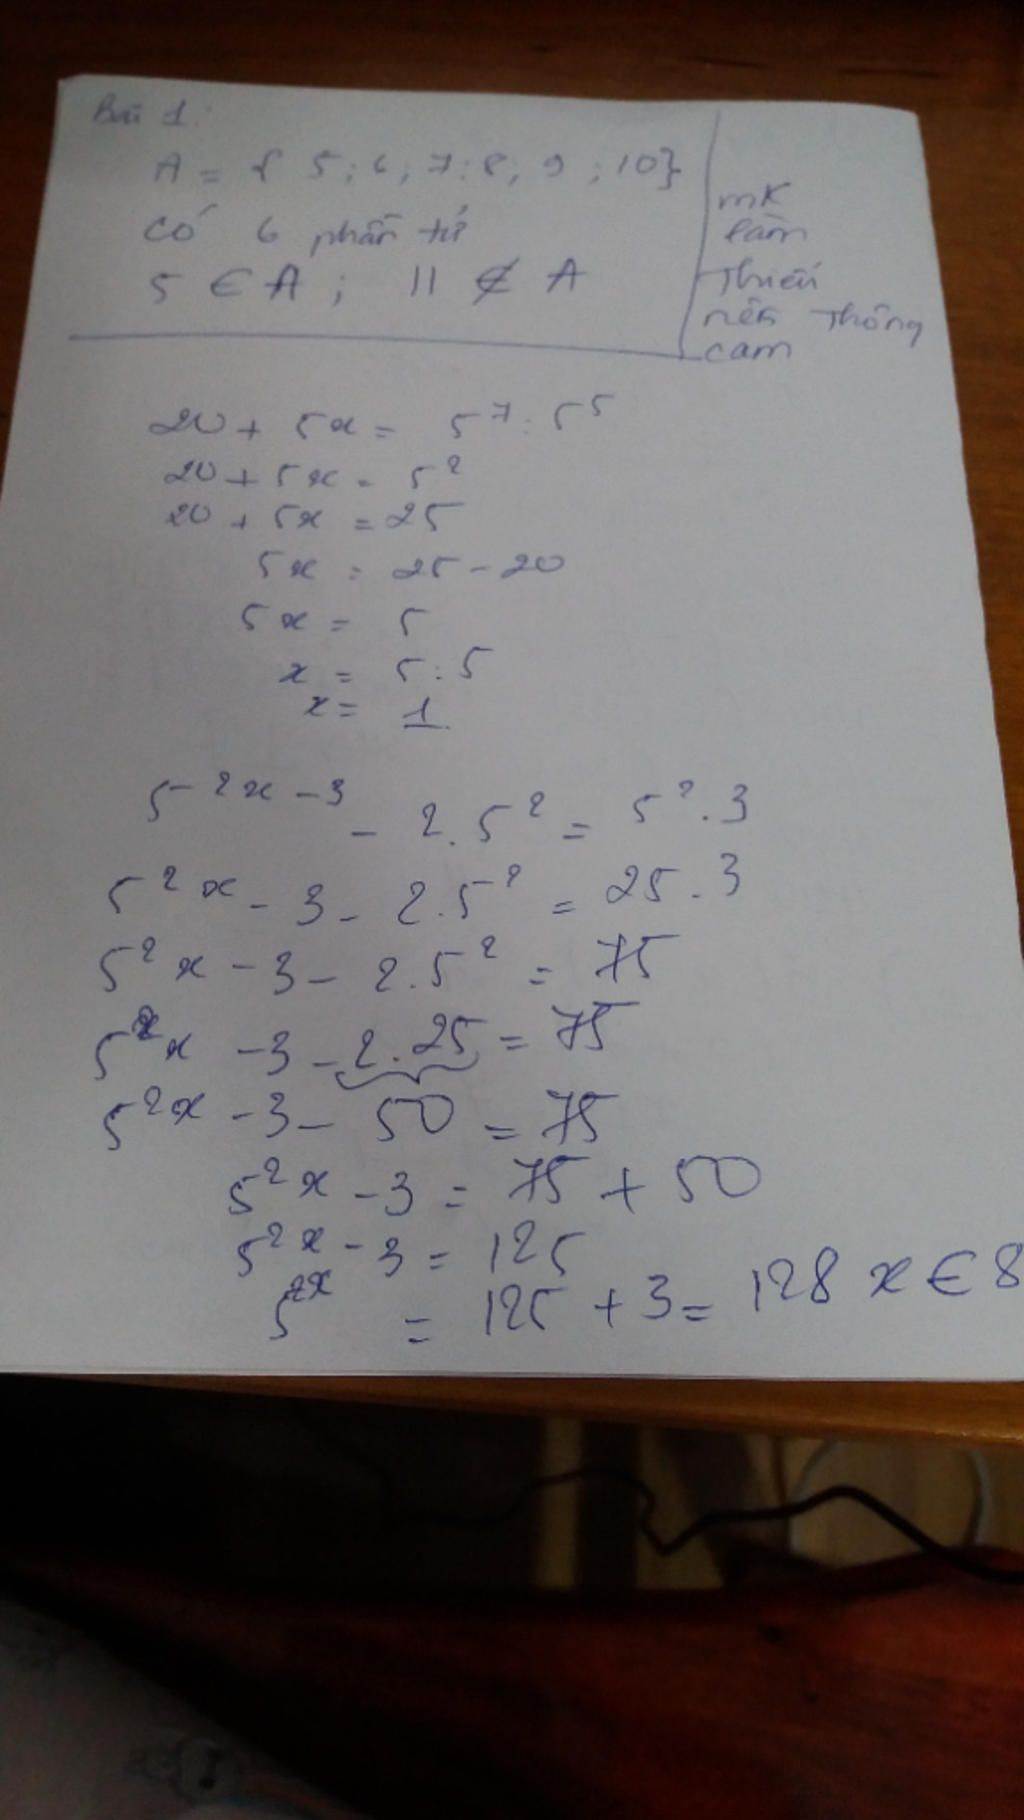 Bài 1:
A = { 5 ; 6 ; 7 ; 8 ; 9 ; 10}
có 6 phần tử
5 ∈ A ; 11 ∉ A
mK
làm
Thiếu
nên Thông
cam
20 + 5x = 5⁷ : 5⁵
20 + 5x = 5²
20 + 5x = 25
5x = 25 - 20
5x = 5
x = 5 : 5
x = 1
5²ˣ⁻³ - 2.5² = 5².3
5²ˣ - 3 - 2.5² = 25.3
5²x - 3 - 2.5² = 75
5²x - 3 - 2.25 = 75
5²ˣ - 3 - 50 = 75
5²x - 3 = 75 + 50
5²ˣ - 3 = 125
5²ˣ = 125 + 3 = 128 x ∈ 8